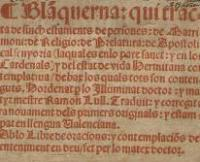 Blāquerna: qui trac
ta de sinch estaments de persones: de Matri
moni: de Religio: de Prelatura: de Apostoli
cal senyoria (laqual es enlo pare sanct, y en los
Cardenals) y del estat de vida Hermitana cō
templatiua, de bar los quals tots son conten
guts. Hordenat per lo Illuminat doctor: y mar
tyr mestre Ramon Lull. Traduit: y corregit
a nouament dels primers originals: y estam
pat en llengua Valenciana.
Ab lo Libre de oracions: y contemplaciōs de
enteniment en deu, fet per lo mateix doctor.